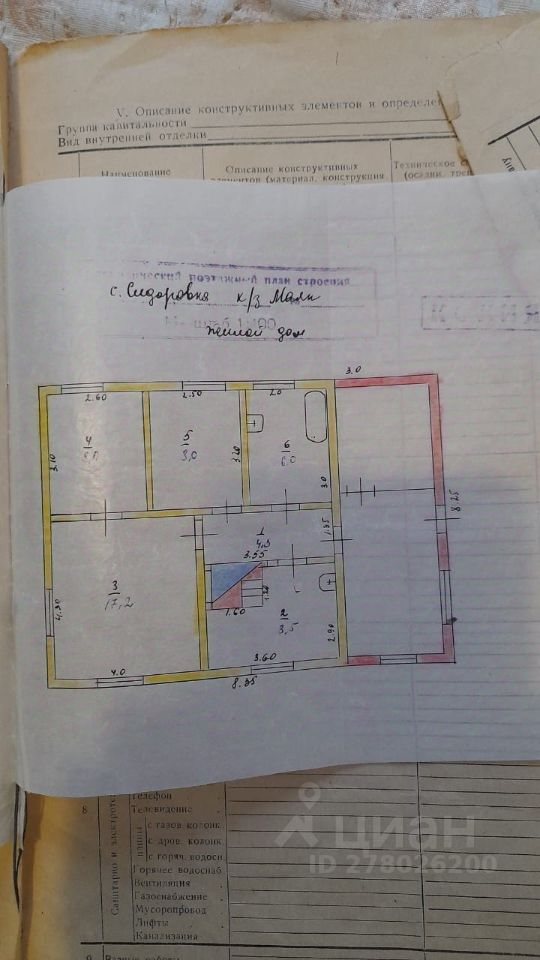 V. Описание конструктивных элементов и определе
Группа капитальности
Вид внутренней отделки
Наименование
Описание конструктивных
элементов (материал, конструкция
Техническое с
(осадки, трещ
поэтажный план строения
с. Сидоровка к/з Маяк
жилой дом
КОПИЯ
3.0
2.60
2.50
2.0
4
5
8,0
6
6.0
3.10
3.20
3.0
8.25
1
4,9
1.35
3.55
3
17,2
4.30
1.60
2
8,5
2.90
4.0
3.60
8.35
Телефон
8
Телевидение
Санитарно и электроте
ванны
с газов. колонк.
с дров. колонк.
с горяч. водосн.
Горячее водоснаб
Вентиляция
Газоснабжение
Мусоропровод
Лифты
Канализация
9
циан
ID 278026200